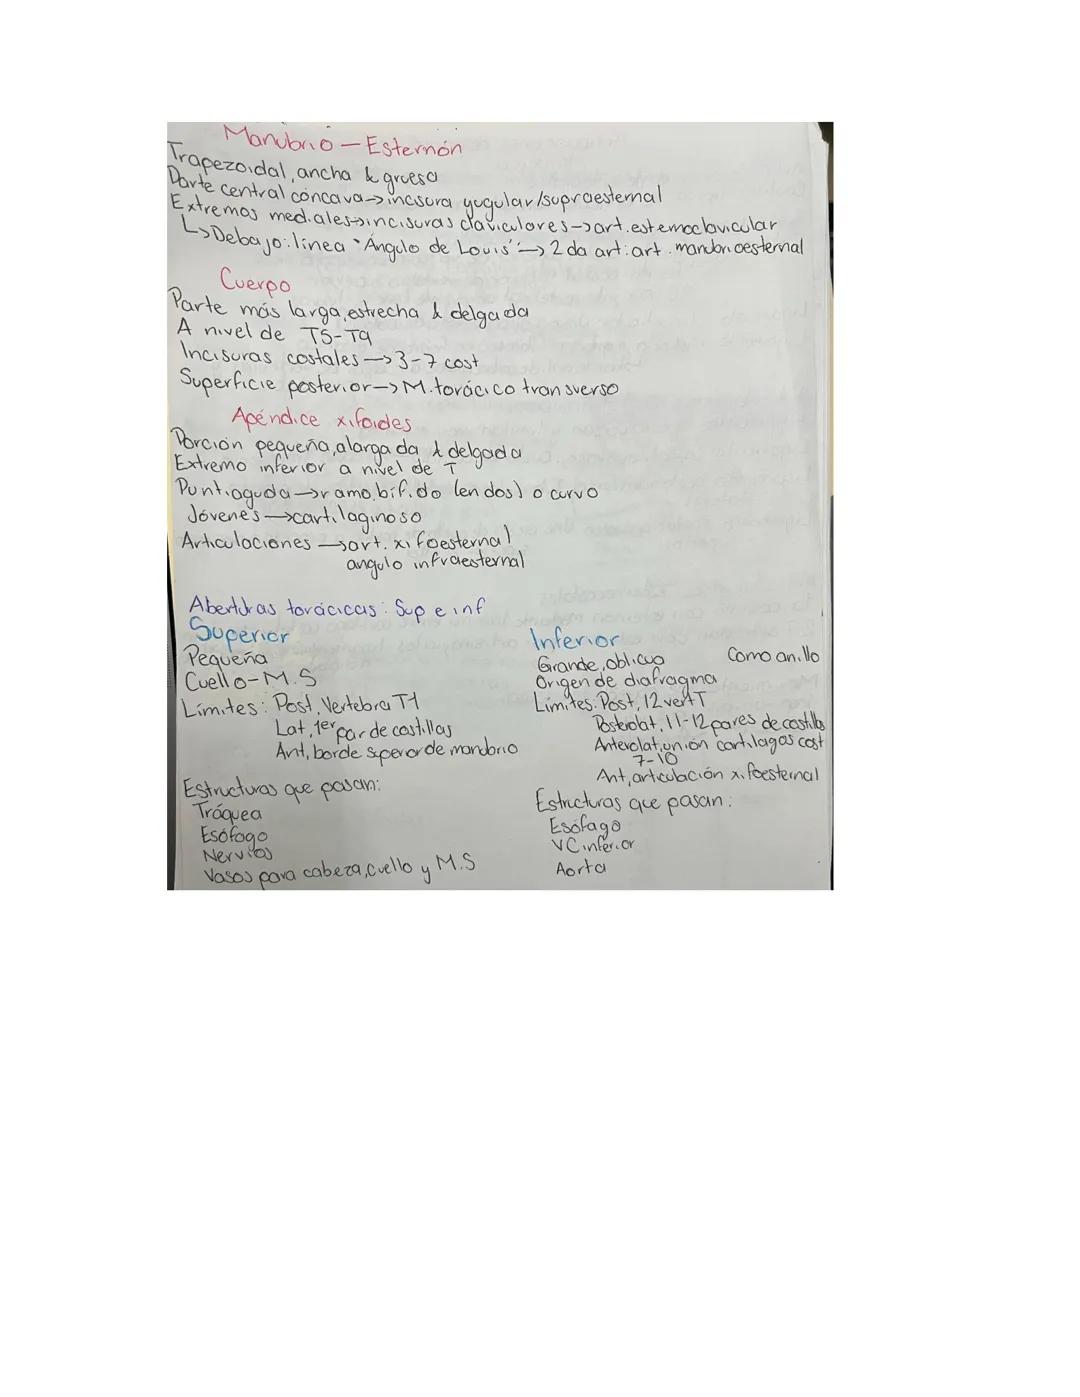 Manubrio - Esternón
Trapezoidal, ancha & gruesa
Parte central cóncava -> incisura yugular/supraesternal
Extremos mediales -> incisuras claviculares -> art. esternoclavicular
↳ Debajo: línea "Ángulo de Louis" -> 2da art: art. manubrioesternal
Cuerpo
Parte más larga, estrecha & delgada
A nivel de T5-T9
Incisuras costales -> 3-7 cost
Superficie posterior -> M. torácico transverso
Apéndice xifoides
Porción pequeña, alargada & delgada
Extremo inferior a nivel de T
Puntiaguda -> ramo, bífido (en dos) o curvo
Jóvenes -> cartilaginoso
Articulaciones -> art. xifoesternal
angulo infraesternal
Aberturas torácicas: Sup e inf
Superior
Pequeña
Cuello - M.S
Límites: Post, Vertebra T1
Lat, 1er par de costillas
Ant, borde superior de manubrio
Estructuras que pasan:
Tráquea
Esófago
Nervios
Vasos para cabeza, cuello y M.S
Inferior
Grande, oblicua Como anillo
Origen de diafragma
Límites: Post, 12 vert T
Posterolat, 11-12 pares de costillas
Anterolat, unión cartílagos cost
7-10
Ant, articulación xifoesternal
Estructuras que pasan:
Esófago
VC inferior
Aorta